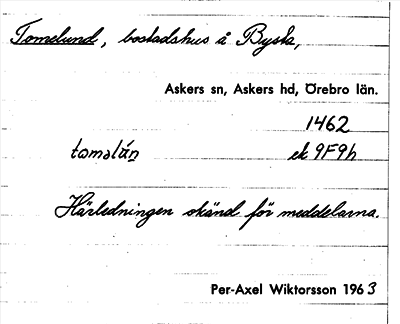 Tomelund, bostadshus å Bysta,
Askers sn, Askers hd, Örebro län.
1462
toməlún ek 9F9h
Härledningen okänd för meddelarna.
Per-Axel Wiktorsson 1963